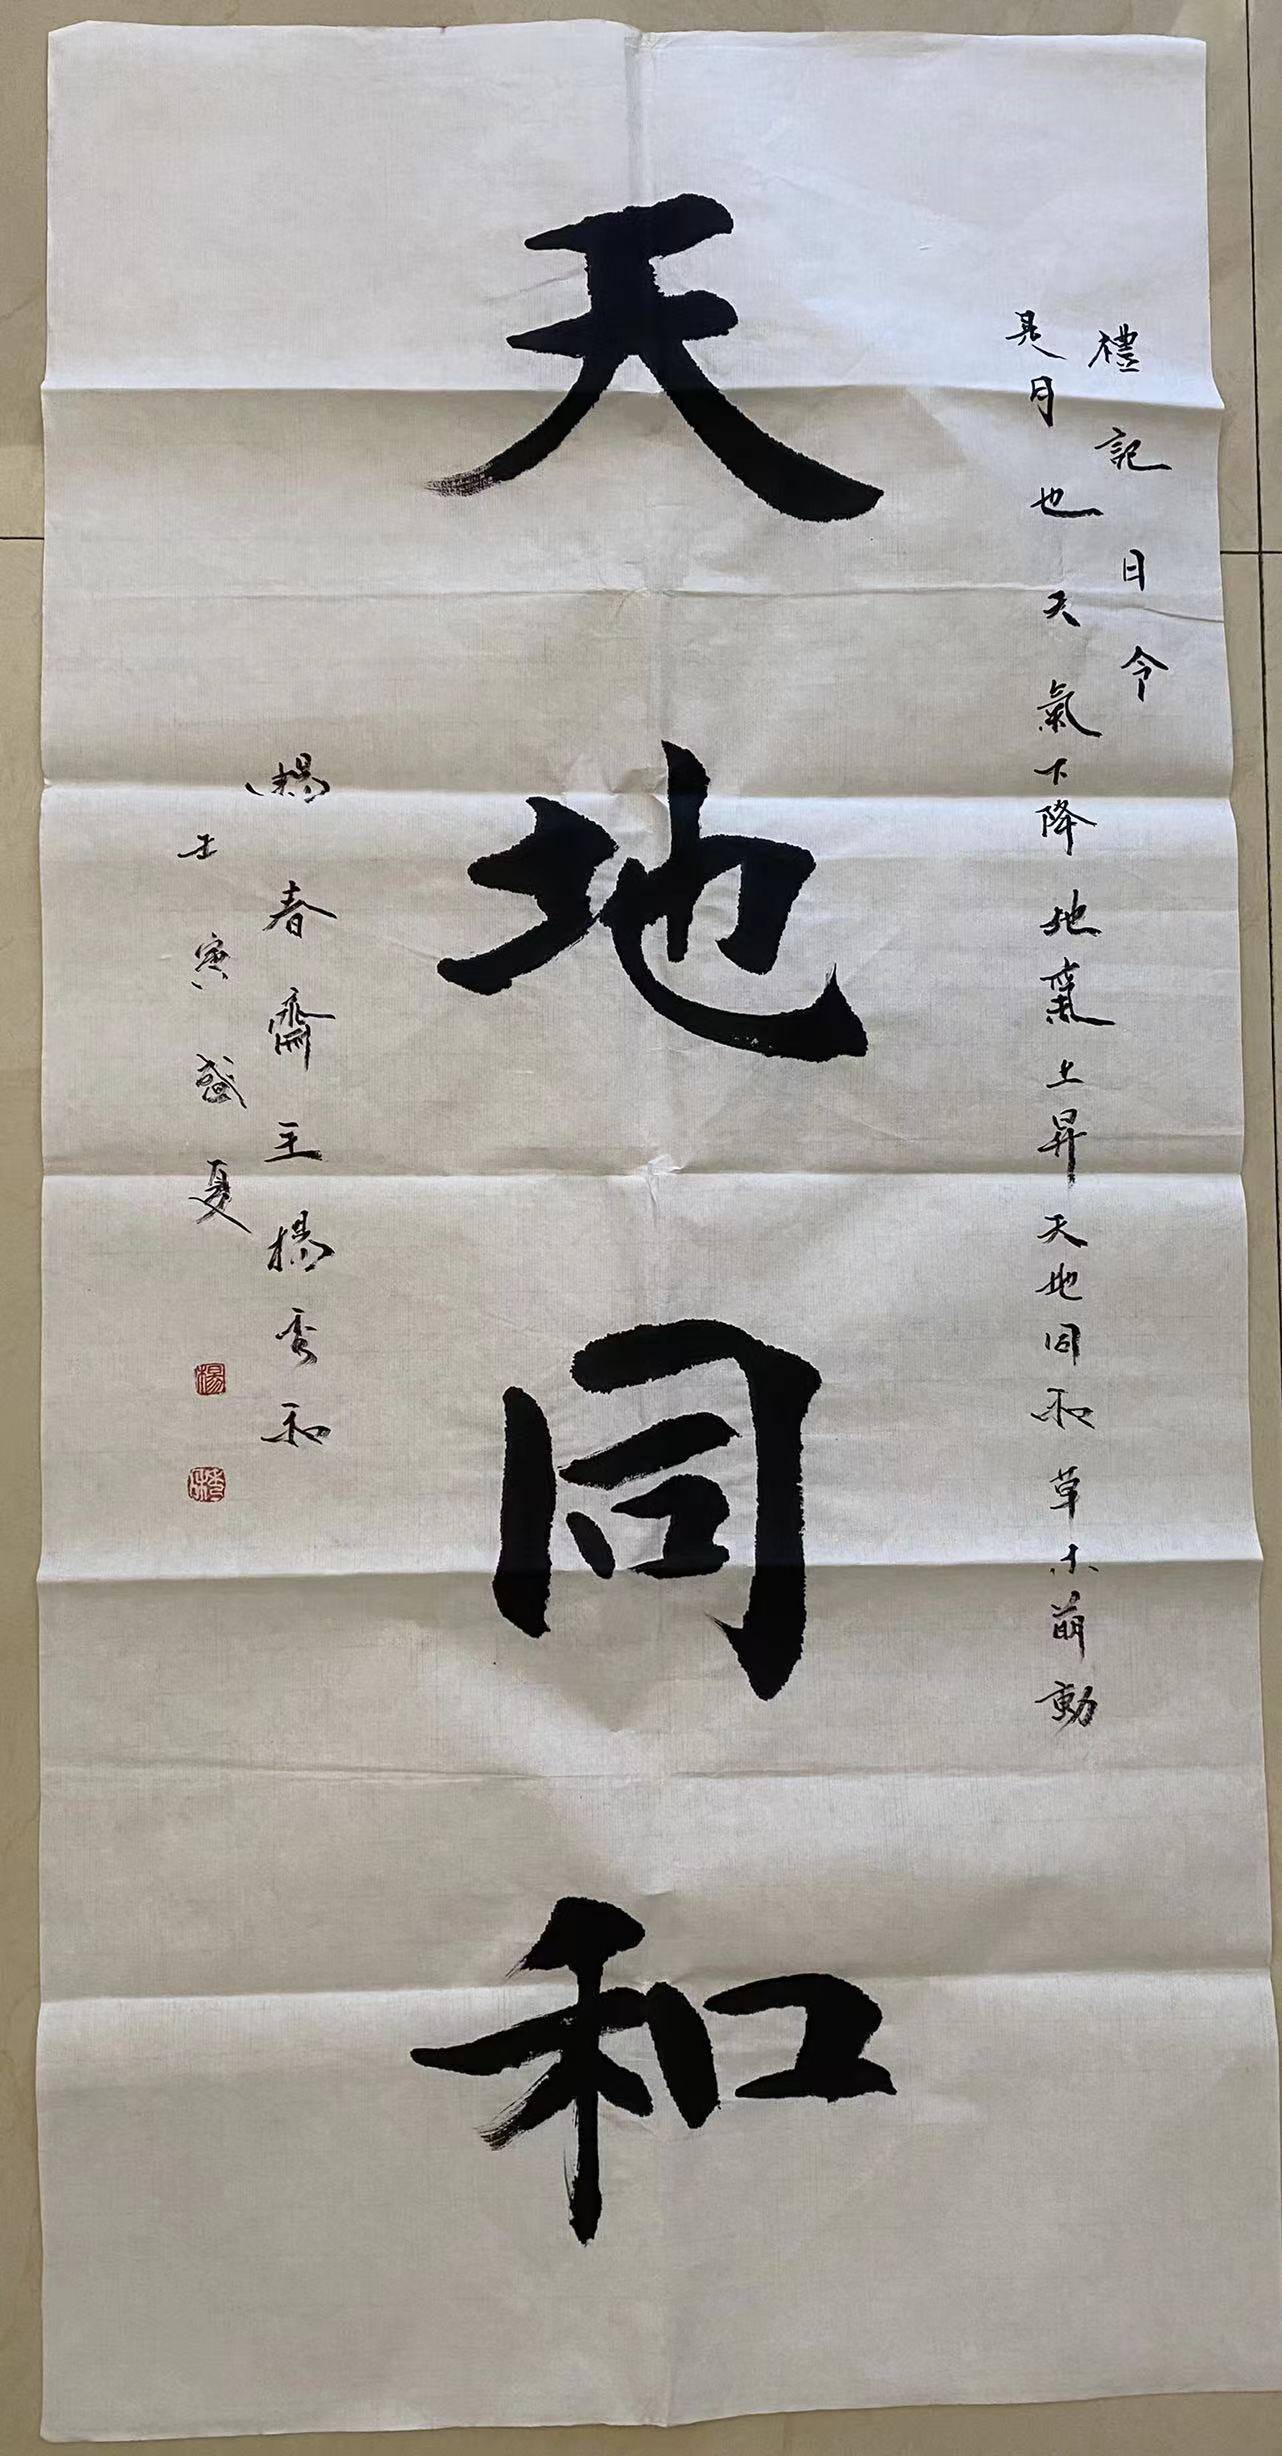 禮記日令
是月也天氣下降地氣上昇天地同和草木萌動
天地同和
楊春齋主楊秀和
壬寅盛夏
楊